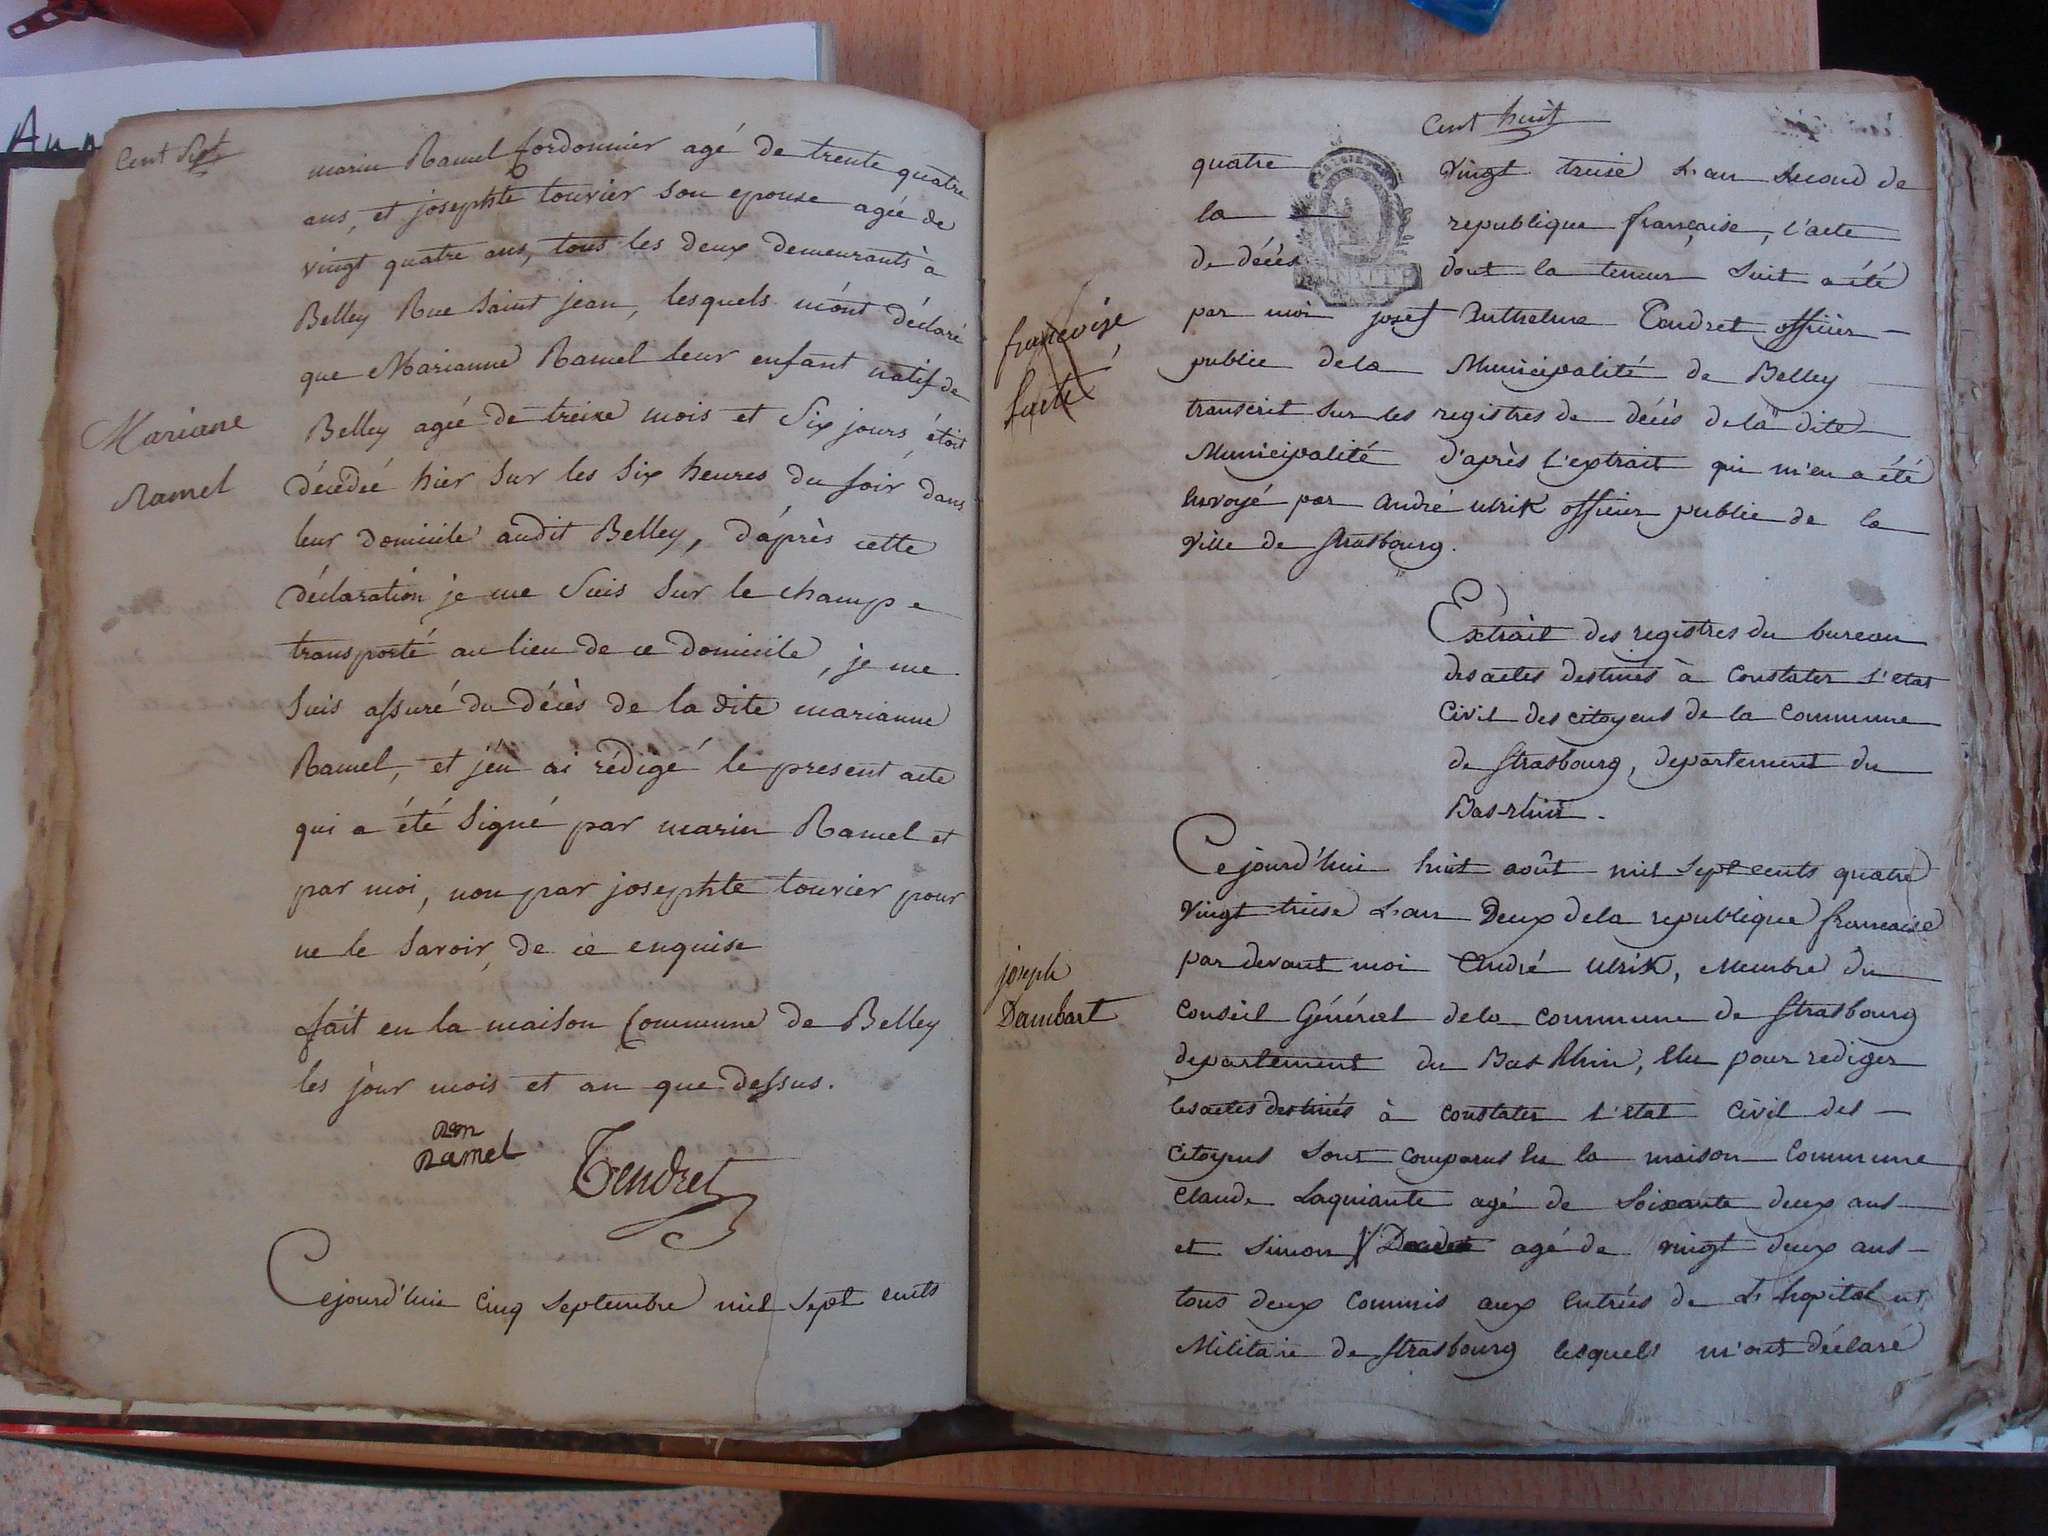 Cent Sept
marin Ramel Cordonnier agé de trente quatre
ans, et josephte touvier son epouse agée de
vingt quatre ans, tous les deux demeurants à
Belley Rue Saint jean, lesquels m'ont déclaré
que Marianne Ramel leur enfant natif de
Belley agée de treize mois et Six jours, étoit
décédée hier sur les six heures du soir dans
leur domicile audit Belley, d'après cette
déclaration je me suis sur le champ
transporté au lieu de ce domicile, je me
suis assuré du décès de la dite marianne
Ramel, et j'en ai rédigé le present acte
qui a été signé par marin Ramel et
par moi, non par josephte touvier pour
ne le savoir, de ce enquise
fait en la maison Commune de Belley
les jour mois et an que dessus.
Ramel
Tendret
Cejourd'hui cinq septembre mil sept cents
Mariane
Ramel
Cent huit
quatre vingt treise L'an second de
la republique française, l'acte
de décès dont la teneur suit a été
par moi josef Anthelme Tendret officier
public de la Municipalité de Belley
transcrit sur les registres de décès de la dite
Municipalité d'après l'extrait qui m'en a été
envoyé par André Ulrik officier public de la
Ville de Strasbourg.
Extrait des registres du bureau
des actes destinés à constater l'etat
Civil des citoyens de la Commune
de Strasbourg, departement du
Bas-rhin.
Cejourd'hui huit août mil sept cents quatre
vingt treise L'an Deux de la republique francaise
par devant moi André Ulrik, Membre du
Conseil Général de la commune de Strasbourg
departement du Bas Rhin, Elu pour rediger
les actes destinés à constater l'etat Civil des
Citoyens sont comparus en la maison Commune
Claude Laquiante agé de Soixante deux ans
et Simon agé de vingt deux ans
tous deux Commis aux entrées de L'hopital
Militaire de Strasbourg lesquels m'ont déclaré
françoise
joseph
Dambart